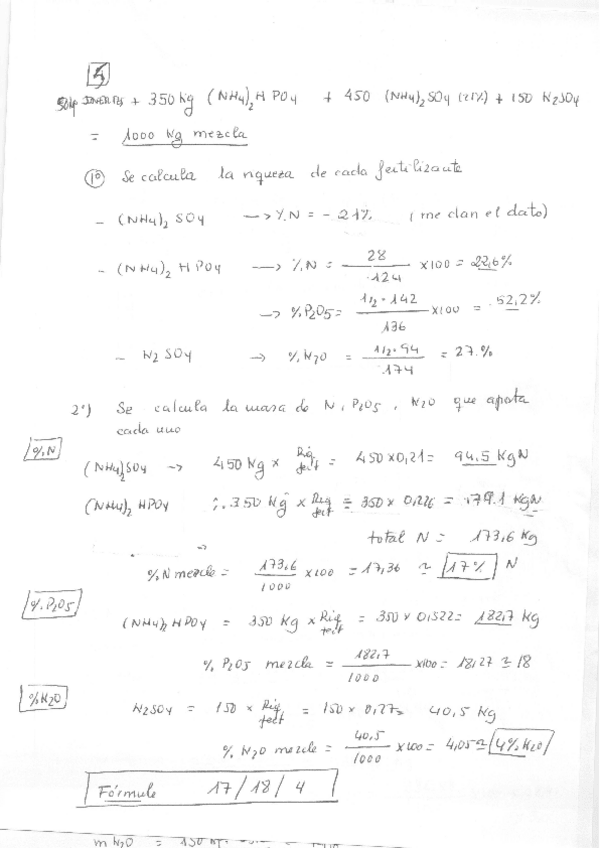 5
50kg INERTES + 350 kg (NH4)2 H PO4 + 450 (NH4)2SO4 (21%) + 150 K2SO4
= 1000 kg mezcla
1º Se calcula la riqueza de cada fertilizante
- (NH4)2 SO4 —> %N = - 21% (me dan el dato)
- (NH4)2 H PO4 —> %N = 28/124 x100 = 22,6%
—> %P2O5 = 1/2 · 142/136 x100 = 52,2%
- K2 SO4 —> %K2O = 1/2 · 94/174 = 27%
2º) Se calcula la masa de N, P2O5, K2O que aporta
cada uno
%N
(NH4)2SO4 -> 450 Kg x Riq fert = 450 x 0,21 = 94.5 Kg N
(NH4)2 HPO4 : 350 Kg x Riq fert = 350 x 0,226 = 79.1 kg N
total N = 173,6 Kg
%N mezcle = 173,6/1000 x100 = 17,36 ≃ 17% N
%P2O5
(NH4)2 HPO4 = 350 Kg x Riq fert = 350 x 0,522 = 182,7 Kg
% P2O5 mezcla = 182,7/1000 x100 = 18,27 ≃ 18
%K2O
K2SO4 = 150 x Riq fert = 150 x 0,27 = 40,5 Kg
% K2O mezcle = 40,5/1000 x100 = 4,05 ≃ 4% K2O
Fórmule 17/18/4
m K2O = 150